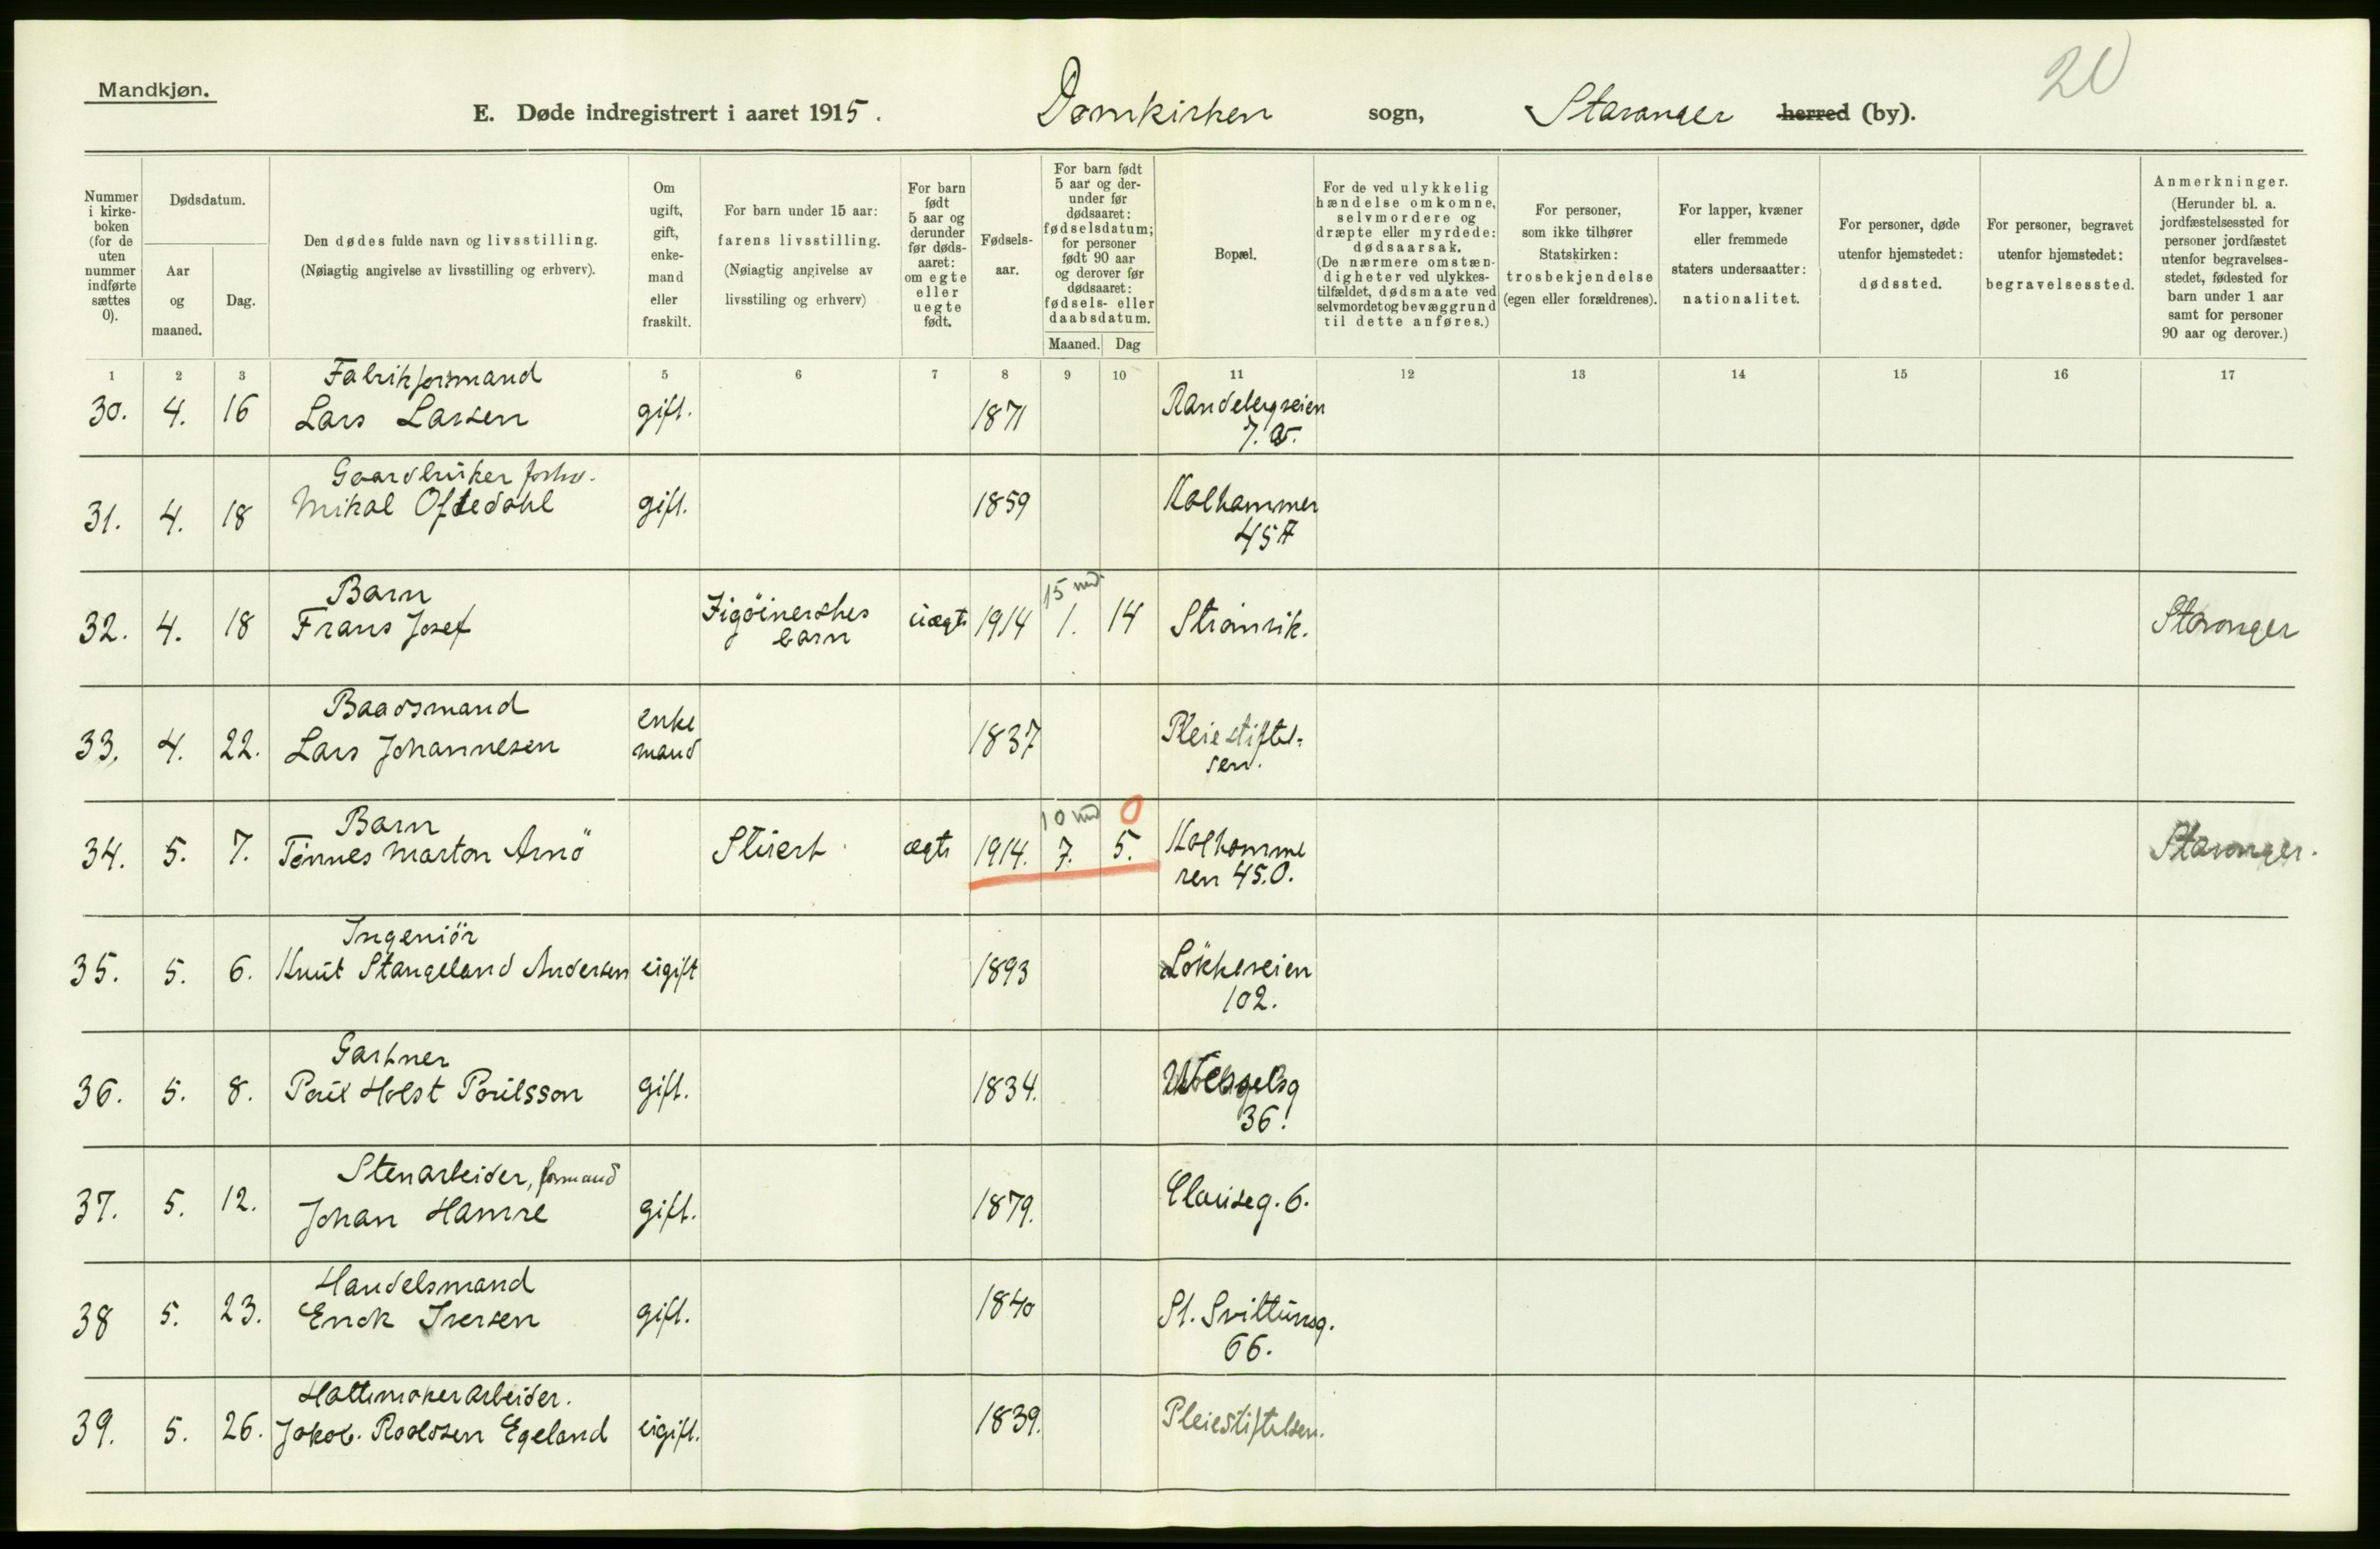 Mandkjøn.
20
E. Døde indregistrert i aaret 1915. Domkirken sogn, Stavanger herred (by).
Nummer i kirkeboken (for de uten nummer indførte sættes 0).
Dødsdatum.
Aar og maaned.
Dag.
Den dødes fulde navn og livsstilling.
(Nøiagtig angivelse av livsstilling og erhverv).
Om ugift, gift, enkemand eller fraskilt.
For barn under 15 aar: farens livsstilling.
(Nøiagtig angivelse av livsstiling og erhverv)
For barn født 5 aar og derunder før dødsaaret: om egte eller uegte født.
Fødselsaar.
For barn født 5 aar og derunder før dødsaaret: fødselsdatum; for personer født 90 aar og derover før dødsaaret: fødsels- eller daabsdatum.
Maaned. Dag
Bopæl.
For de ved ulykkelig hændelse omkomne, selvmordere og dræpte eller myrdede: dødsaarsak.
(De nærmere omstændigheter ved ulykkestilfældet, dødsmaate ved selvmordet og bevæggrund til dette anføres.)
For personer, som ikke tilhører Statskirken: trosbekjendelse (egen eller forældrenes).
For lapper, kvæner eller fremmede staters undersaatter: nationalitet.
For personer, døde utenfor hjemstedet: dødssted.
For personer, begravet utenfor hjemstedet: begravelsessted.
Anmerkninger.
(Herunder bl. a. jordfæstelsessted for personer jordfæstet utenfor begravelsesstedet, fødested for barn under 1 aar samt for personer 90 aar og derover.)
1 2 3 5 6 7 8 9 10 11 12 13 14 15 16 17
Fabrikformand
30. 4. 16 Lars Larsen gift. 1871 Randebergveien
7. a.
Gaardbruker forhv.
31. 4. 18 Mikal Oftedahl gift. 1859 Kalhammer
45A
Barn 15 md.
32. 4. 18 Frans Josef Zigöinerskes uægte 1914 1. 14 Strömvik. Stavanger
barn
Baadsmand
33. 4. 22. Lars Johannesen enke 1837 Pleiestiftel-
mand sen.
Barn 10 md 0
34. 5. 7. Tönnes Marton Arnö Stuert ægte 1914. 7. 5. Kalhamme Stavanger.
ren 45.O.
Ingeniör
35. 5. 6. Knut Stangeland Andersen ugift 1893 Lökkeveien
102.
Gartner
36. 5. 8. Poul Holst Poulsson gift. 1834.
36.
Stenarbeider, formand
37. 5. 12. Johan Hamre gift. 1879. Clauseg. 6.
Handelsmand
38 5. 23. Erick Iversen gift. 1840 St. Svittunsg.
66.
Hattemakerarbeider.
39. 5. 26. Jakob Roaldsen Egeland ugift. 1839. Pleiestiftelsen.